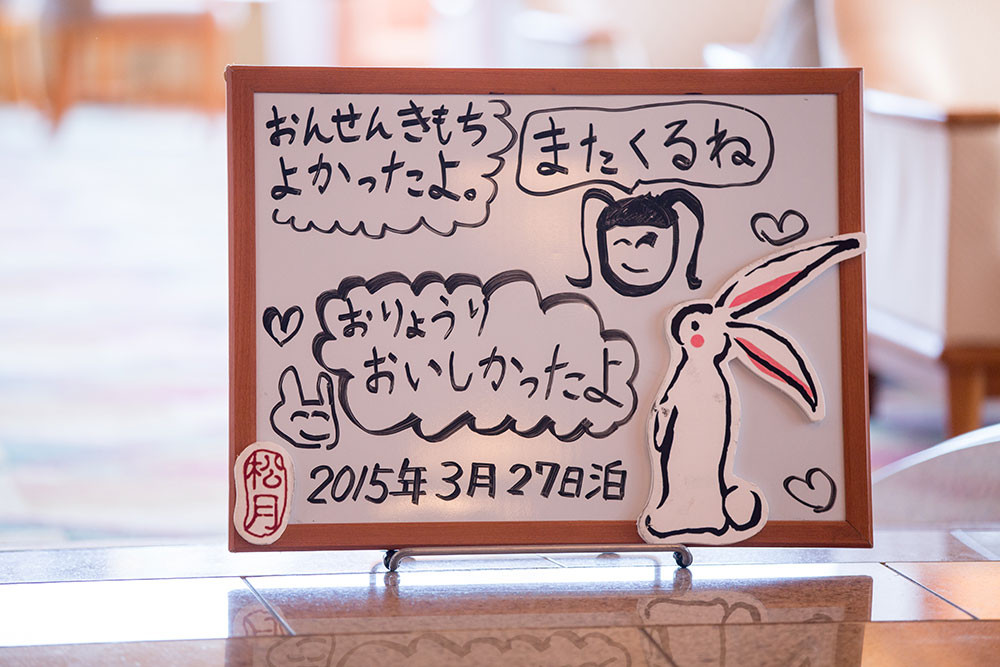 おんせんきもち
よかったよ。
またくるね
おりょうり
おいしかったよ
2015年3月27日泊
松月